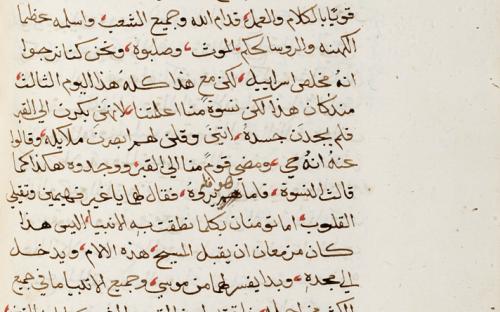 قويًا بالكلام والعمل، قدام الله وجميع الشعب، واسلمه عظما
الكهنه والروسا لحكم الموت، وصلبوه، ونحن كنا نرجوا
انه مخلص اسراييل، لكن مع هذا كله هذا اليوم الثالث،
منذ كان هذا لكن نسوة منا اعلمتنا، لانهن بكرن الي القبر
فلم يجدن جسده، اتين وقلن لهم ابصرن ملايكه، وقالوا
عنه انه حي، ومضي قوم منا الي القبر، ووجدوه هكذا كما
قالت النسوة، فاما هو فلم يروه، فقال لهما يا غير فهمين وثقيلي
القلوب، اما تومنان بكلما نطقت به الانبيا، اليس هذا
كان مزمعان ان يقبل المسيح، هذه الالام، ويدخل
الي مجده، وبدا يفسر لهما من موسي، وجميع الانبيا ما في جميع